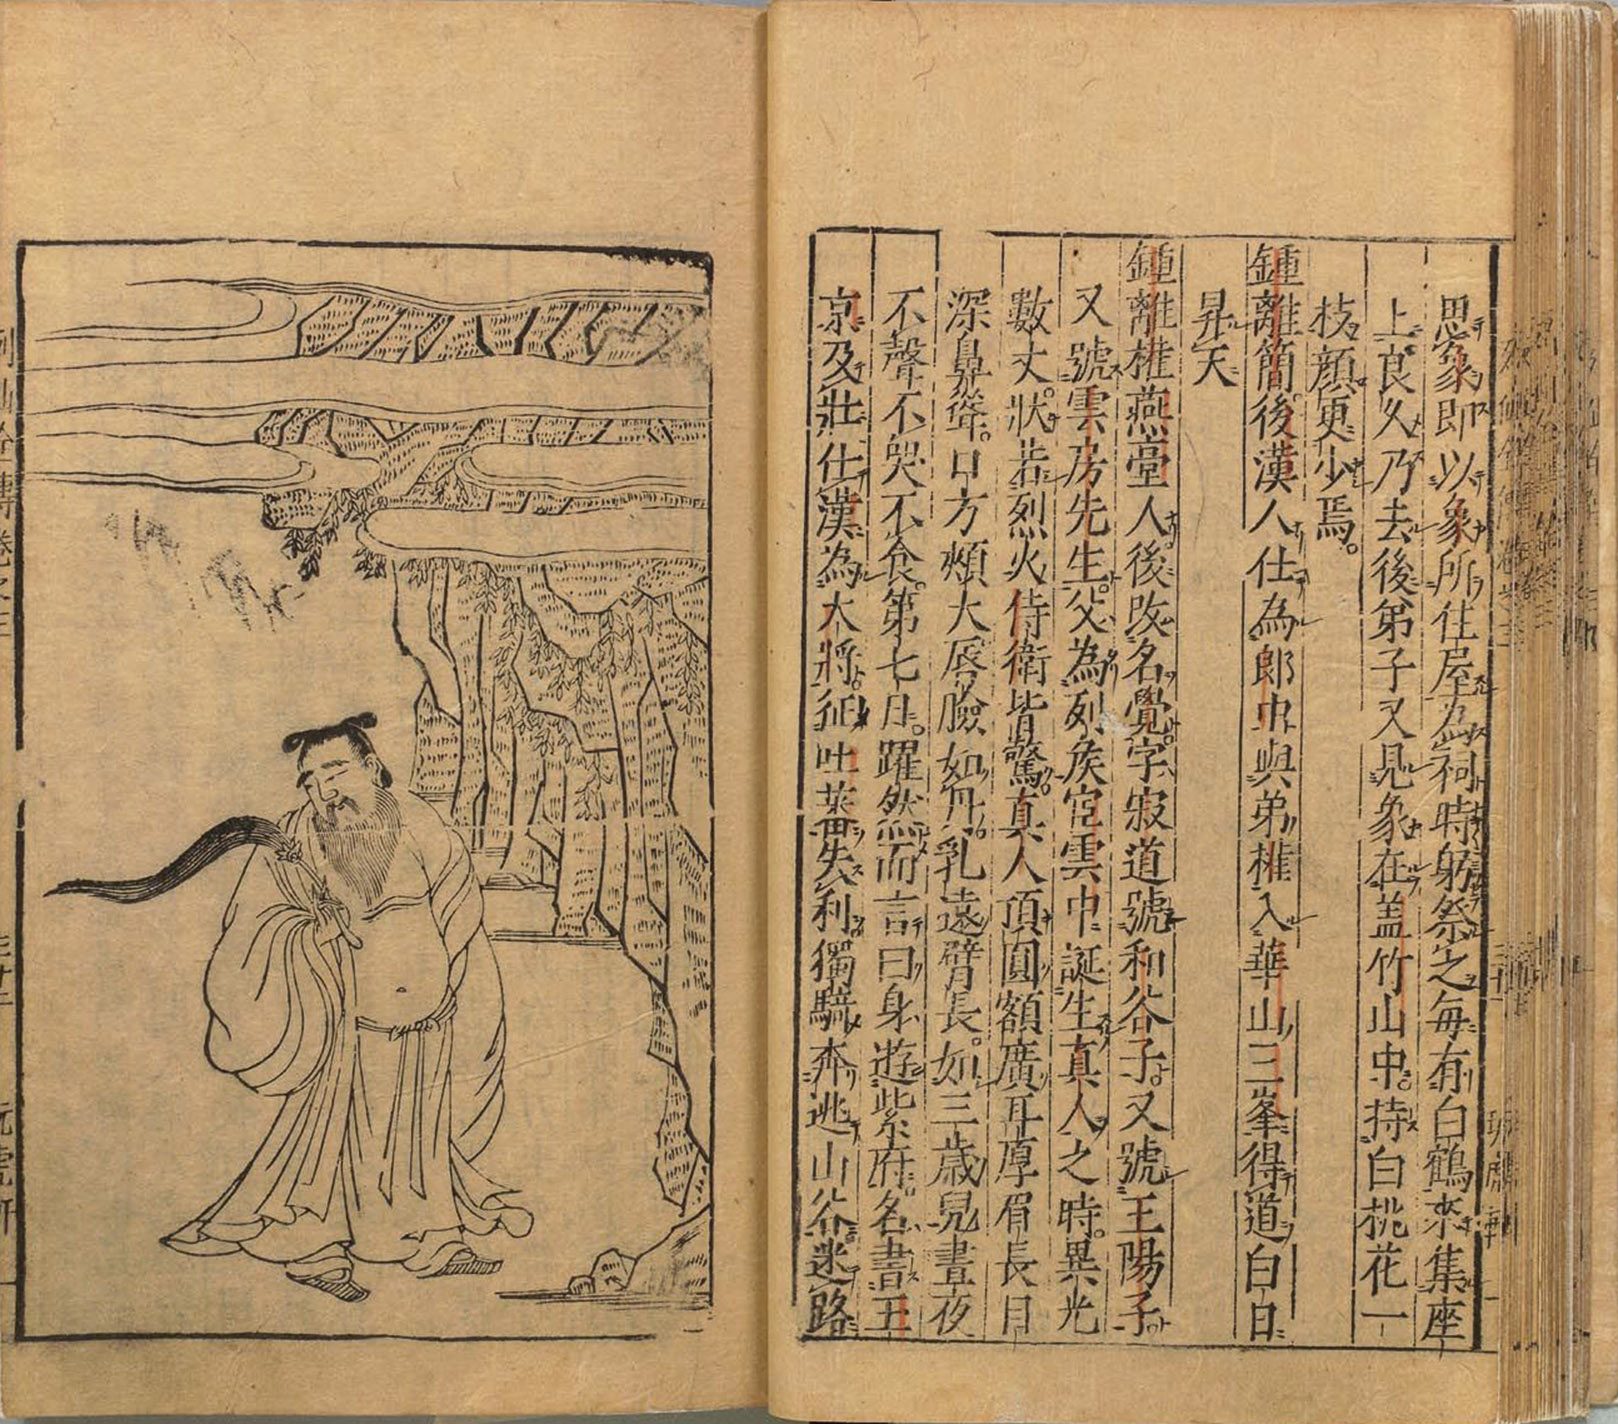 思象即以象所住屋為祠時躬祭之每有白鶴來集座
上良久乃去後弟子又見象在盖竹山中持白桃花一
枝顔更少焉。
鍾離簡後漢人仕為郎中與弟權入華山三峯得道白日
昇天
鍾離權燕臺人後改名覺字寂道號和谷子又號王陽子
又號雲房先生父為列矦宦雲中誕生真人之時異光
數丈狀若烈火侍衛皆驚真人頂圓額廣耳厚眉長目
深鼻聳口方頰大唇臉如丹乳遠臂長如三歲兒晝夜
不聲不哭不食第七日躍然而言曰身遊紫府名書玉
京及壯仕漢為大將征吐蕃失利獨騎奔逃山谷迷路
列仙全傳卷之三
玩虎軒